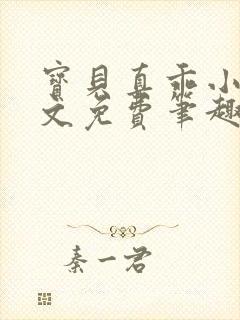 寶見真乖小
文免費筆趣
秦一君